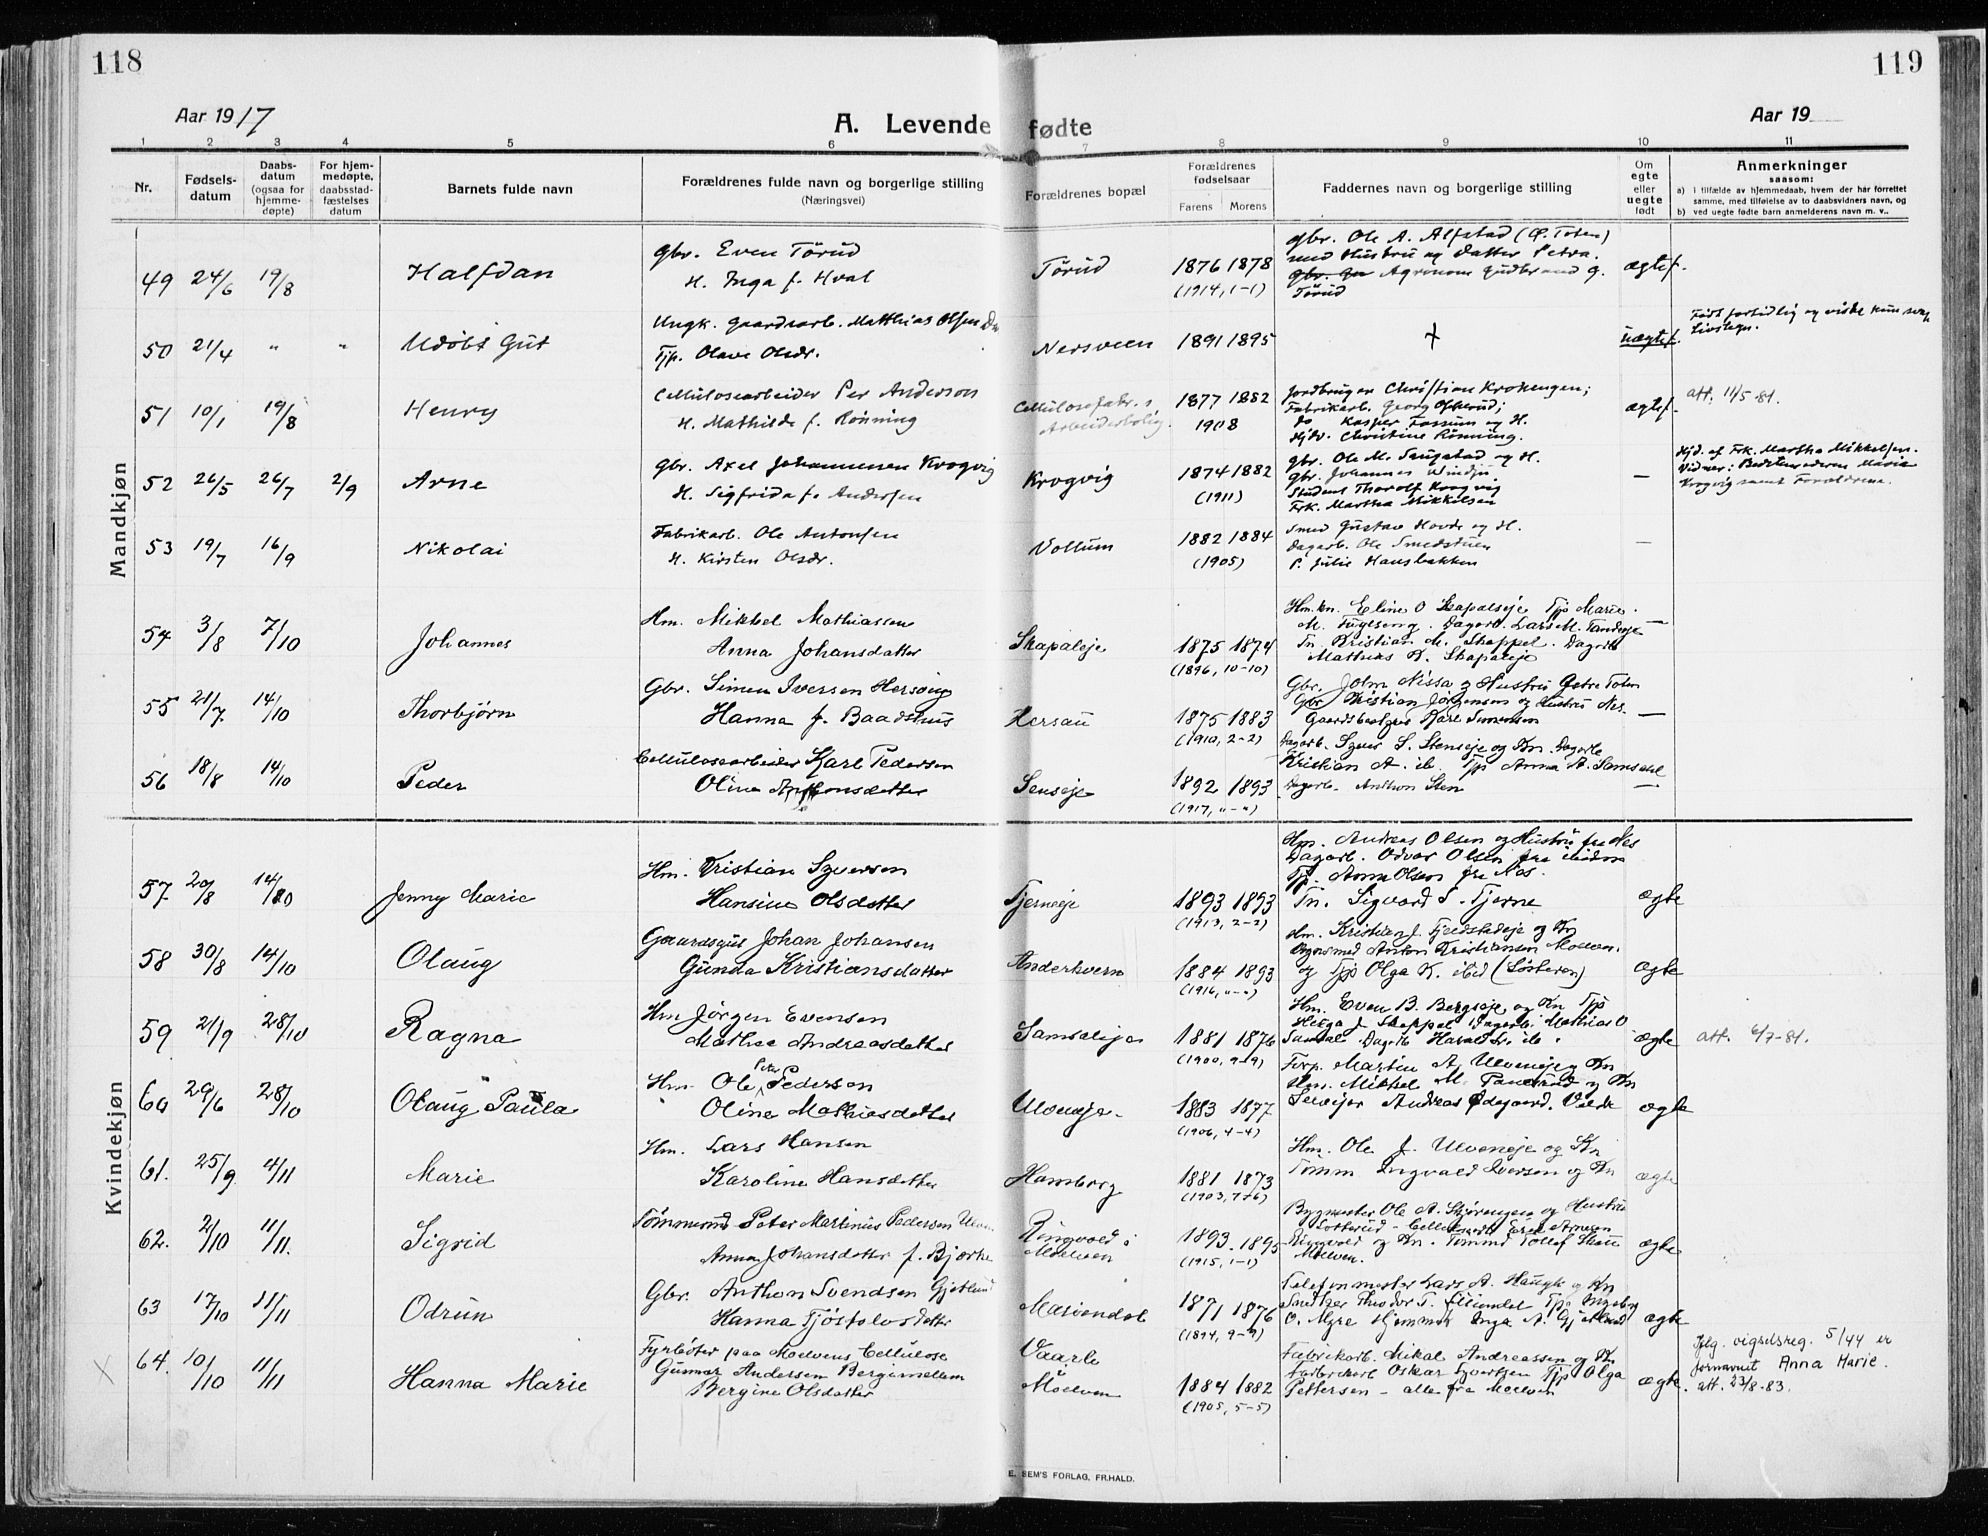 118
119
Aar 1917
A. Levende fødte
Aar 19
1 2 3 4 5 6 7 8 9 10 11
Nr.
Fødselsdatum
Daabsdatum (ogsaa for hjemmedøpte)
For hjemmedøpte, daabsstadfæstelses datum
Barnets fulde navn
Forældrenes fulde navn og borgerlige stilling
(Næringsvei)
Forældrenes bopæl
Forældrenes fødselsaar
Farens Morens
Faddernes navn og borgerlige stilling
Om egte eller uegte født
Anmerkninger
saasom:
a) i tilfælde av hjemmedaab, hvem der har forrettet
samme, med tilføielse av to daabsvidners navn, og
b) ved uegte fødte barn anmelderens navn m. v..
Mandkjøn
49 24/6 19/8 Halfdan
gbr. Even Tørud
H. Inga f. Hval
Tørud
1876 1878
(1914, 1-1)
gbr. Ole A. Alfstad (Ø. Toten)
med Hustru og Datter Petra.
Agronom Gudbrand G.
Tørud
ægtef.
50 21/4 " " Udøbt Gut
Ungk. Gaardsarb. Matthias Olsen
Tjp. Olave Olsdr.
Nersveen
1891 1895
+
uægtef.
Født fortidlig og viste kun svage
Livstegn.
51 10/1 19/8 Henry
Cellulosearbeider Per Anderson
H. Mathilde f. Rønning
Cellulosefabr.s
Arbeiderbolig
1877 1882
1908
Jordbruger Christian Krokengen;
Fabrikarb. Georg
do Kasper Fossum og H.
Christine Rønning.
ægtef.
att. 11/5-81.
52 26/5 26/7 2/9 Arne
gbr. Axel Johannessen Krogvig
H. Sigfrida f. Andersen
Krogvig
1874 1882
(1911)
gbr. Ole M. Saugstad og H.
gbr. Johannes Windju
Student Thorolf Krogvig
Frk. Martha Mikkelsen
—
Hjd. af Frk. Martha Mikkelsen.
Vidner: Bedstemoderen Maria
Krogvig samt Forældrene.
53 19/7 16/9 Nikolai
Fabrikarb. Ole Antonsen
H. Kirsten Olsdr.
Vollum
1882 1884
(1905)
Smed Gustav Hovde og H.
Dagarb. Ole Smedstuen
P. Julie Hansbakken
—
54 3/8 7/10 Johannes
Hm. Mikkel Mathiassen
Anna Johansdatter
Skapaleje
1875 1874
(1896, 10-10)
Hm. kn. Eline O Skapaleje Tjp Marie
M. Fuglseng. Dagarb. Lars M.
Tn. Kristian M. Skappel. Dagarb
Mathias K. Skapaleje
—
55 21/7 14/10 Thorbjørn
Gbr. Simen Iversen Hersoug
Hanna f. Baadshus
Hersau
1875 1883
(1910, 2-2)
Gbr. John Nissa og Hustru Østre Toten
Gbr Kristian Jörgensen og Hustru Nes
Gaardsbestyrer Karl Simensen
—
56 18/8 14/10 Peder
Cellulosearbeider Karl Pedersen
Oline Antonsdatter
Senseje
1892 1893
(1917, "-")
Dagarb. Syver S. Stenseje og Kn. Dagarb
Kristian A. ib. Tjp Anna A. Samsdal
Dagarb. Anthon Sten
—
Kvindekjøn
57. 20/8 14/10 Jenny Marie
Hm. Kristian Syversen
Hansine Olsdatter
Tjerneje
1893 1893
(1913, 2-2)
Hm. Andreas Olsen og Hustru fra Nes
Dagarb. Odvar Olsen fra ibidem
Tp. Anna Olsen fra Nes.
Tn. Sigvard S. Tjerne
ægte
58 30/8 14/10 Olaug
Gaardsgut Johan Johansen
Gunda Kristiansdatter
Anderkvern
1884 1893
(1916, "-")
Hm. Kristian J. Fjeldstadeje og Kn
Anton Kristiansen Moelven.
og Tjp Olga K. ibid
ægte
59 21/9 28/10 Ragna
Hm Jörgen Evensen
Mathea Andreasdatter
Samsaleje
1881 1876
(1900, 9-9)
Hm. Even B. Bergseje og Kn Tjp
Helga J. Skappel Dagarb. Mathias O
Samsal. Dagarb Harald L. ib.
ægte
att. 6/7-81.
60 29/6 28/10 Olaug Paula
Hm. Ole Peter Pedersen
Oline Mathiasdatter
Ulveneje
1883 1877
(1906, 4-4)
Forp. Martin A. Ulveneje og Kn
Hm. Mikkel M. og Kn
Andreas Ødegaard. Veldre
ægte
61. 25/9 4/11 Marie
Hm. Lars Hansen
Karoline Hansdatter
Hamborg
1881 1873
(1903, 7-6)
Hm. Ole J. Ulveneje og Kn
Tømm. Ingvald Iversen og Kn
ægte
62. 2/10 11/11. Sigrid
Tømmermd Peter Martinus Pedersen
Anna Johansdatter f. Bjerke
Ringvold i
Moelven
1893 - 1895
(1915, 1-1)
Bygmester Ole A. Skjørengen og Hustru
Ringvold og Kn. Tømmd Tollef Skau
Moelven.
ægte
63 17/10 11/11 Odrun
Gbr. Anthon Svendsen Gjetlund
Hanna Tjøstolvsdatter
Mariendal
1871 1876
(1894, 9-9)
Telefonmester Lars A. Haugli og Kn
Theodor T. Tjp Ingeborg
O. Myre Hjemmev. Inga A. Gjetlund
ægte
× 64. 10/10 11/11 Hanna Marie
Fyrbøter paa Moelvens Cellulose
Gunnar Andersen Bergimellem
Bergine Olsdatter
Vaarli
Moelven
1884 1882
(1905, 5-5)
Fabrikarb. Mikal Andreassen og Kn
Fabrikarb Oskar Sivertsen Tjp Olga
Pettersen - alle fra Moelven
ægte
Iflg. vigselsreg. 5/44 er
fornavnet Anna Marie.
att. 23/8-83.
E. SEM'S FORLAG, FR.HALD.